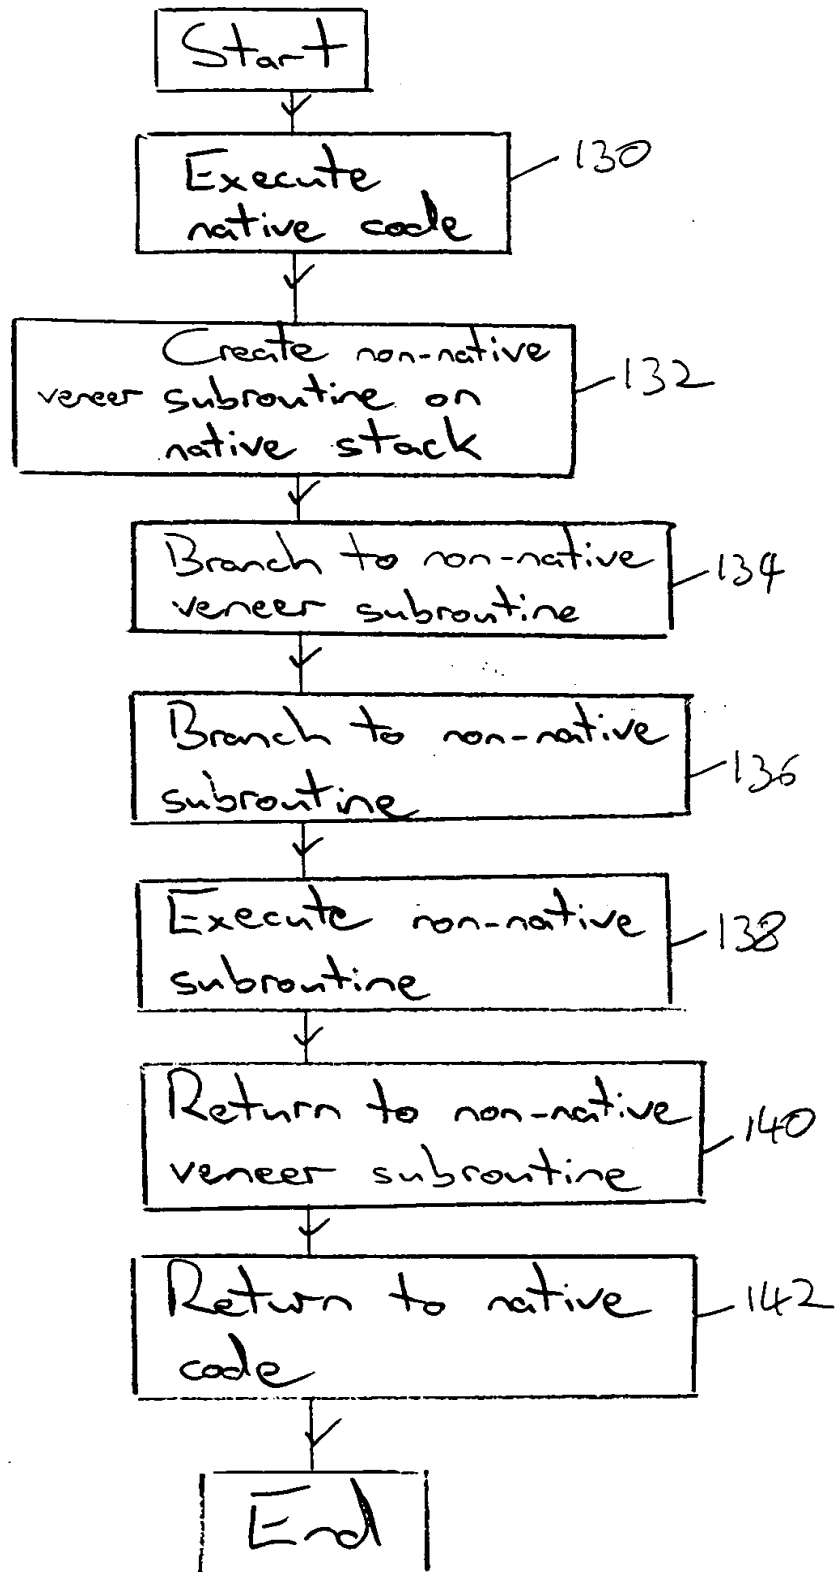 Start
Execute
native code
130
Create non-native
veneer subroutine on
native stack
132
Branch to non-native
veneer subroutine
134
Branch to non-native
subroutine
136
Execute non-native
subroutine
138
Return to non-native
veneer subroutine
140
Return to native
code
142
End